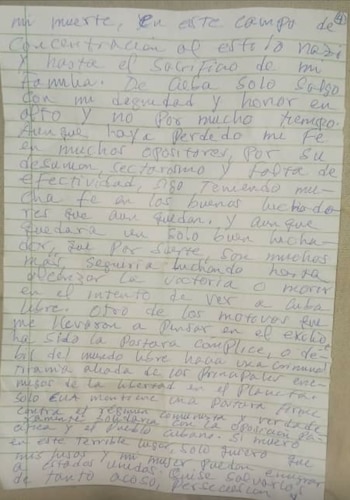 mi muerte, en este campo de
concentracion al estilo nazi
y hasta el sacrificio de mi
familia. De Cuba solo salgo
con mi dignidad y honor en
alto y no por mucho tiempo.
Aunque haya perdedo mi fe
en muchos opositores, por su
desunion, sectarismo y falta de
efectividad, sigo teniendo mu-
cha fe en los buenos luchado-
res que aun quedan. y aunque
quedara un solo buen lucha-
dor, que por suerte, son muchos
mas, seguiria luchando hasta
alcanzar la victoria o morir
en el intento de ver a Cuba
libre. Otro de los motivos que
me llevaron a pensar en el exilio,
ha sido la postura complice, o de-
bil del mundo libre hacia una criminal
tirania aliada de los principales ene-
migos de la libertad en el planeta.
Solo EUA mantiene una postura firme
contra el regimen comunista y verdade
ramente solidaria con la oposicion pa-
cifica y el pueblo cubano. Si muero
en este terrible lugar, solo quiero que
mis hijos y mi mujer puedan emigrar
a estados unidos, quise salvarlos
de tanto acoso, persecucion y